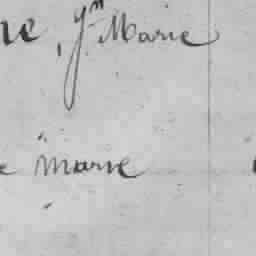 ne, Jn Marie
e Marie